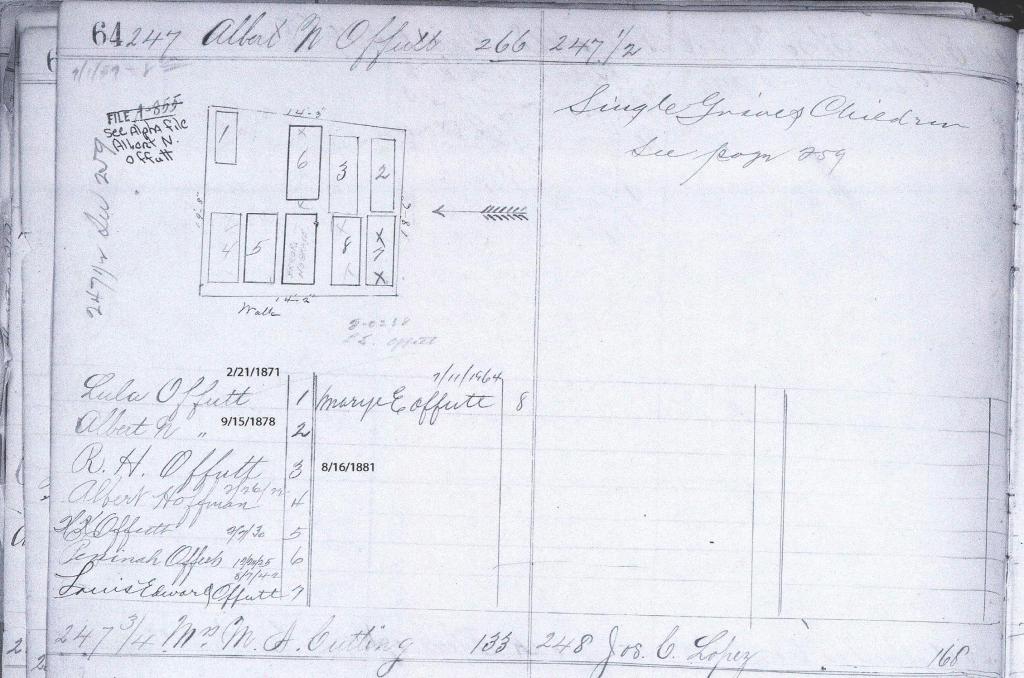 64 247 Albert N Offutt 266 247 1/2
FILE A-855
See Alpha File
Albert N.
Offutt
Single Graves Children
See page 259
247 1/2 See 259
14'-3"
1
6
3
2
4
5
8
7
14'-2"
Walk
2/21/1871
7/11/1964
Lula Offutt 1 Marye E Offutt 8
Albert N " 9/15/1878 2
R. H. Offutt 3 8/16/1881
Albert Hoffman 4
Offutt 5
Peninah Offutt 6
8/7/42
Louis Edward Offutt 7
247 3/4 Mrs M. A. Cutting 133 248 Jos. C. Lopez 168